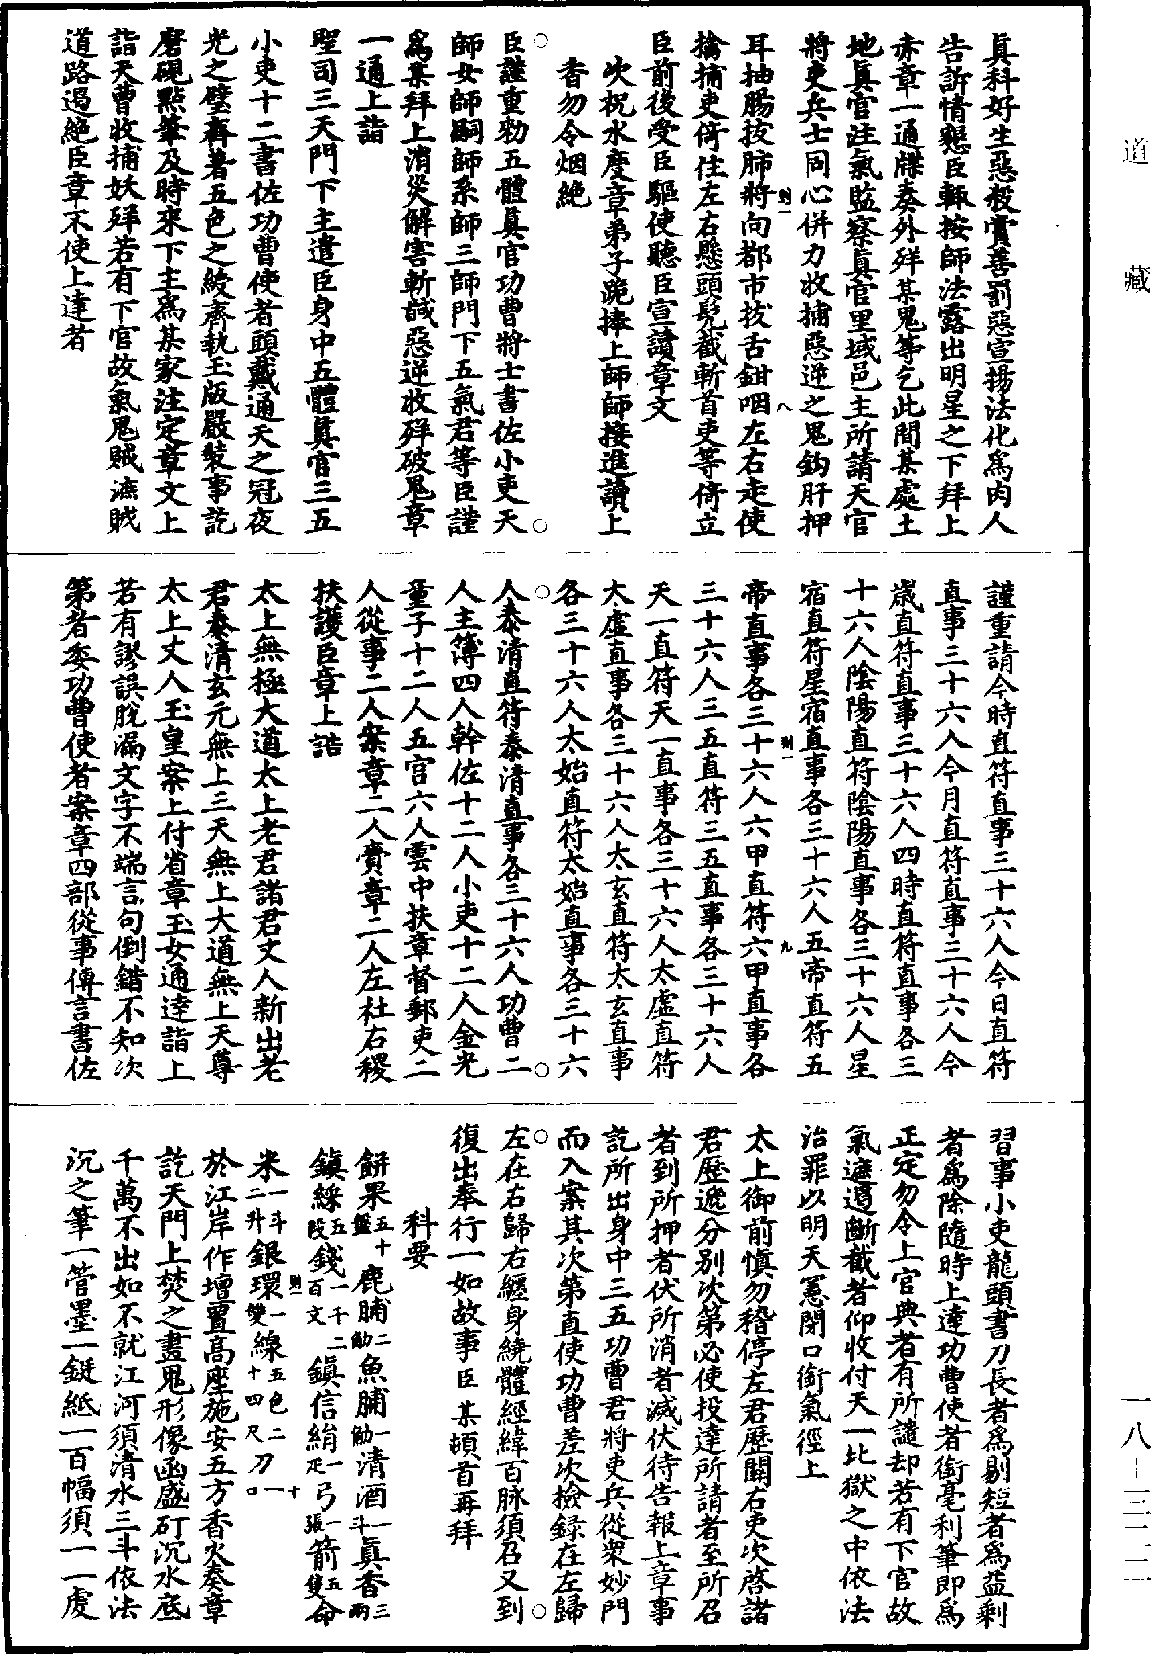 道藏
一八—三二二
眞科好生惡殺賞善罰惡宣揚法化爲肉人
告訴情懇臣輒按師法露出明星之下拜上
赤章一通牒奏外殗某鬼等乞此間某處土
地眞官注氣監察眞官里域邑主所請天官
將吏兵士同心併力收捕惡逆之鬼鈎肝押
耳抽腸拔肺將向都市拔舌鉗咽左右走使
擒捕吏倚住左右懸頭髡截斬首吏等倚立
臣前後受臣驅使聽臣宣讀章文
次祝水度章弟子跪捧上師師接進讀上
香勿令烟絶
臣謹重勑五體眞官功曹將士書佐小吏天
師女師嗣師系師三師門下五氣君等臣謹
爲某拜上消災解害斬馘惡逆收殗破鬼章
一通上詣
聖司三天門下主遣臣身中五體眞官三五
小吏十二書佐功曹使者頭戴通天之冠夜
光之璧齊著五色之綾齊執玉版嚴裝事訖
磨硯點筆及時來下主爲某家注定章文上
詣天曹收捕妖殗若有下官故氣鬼賊濨賊
道路遏絶臣章不使上達者
謹重請今時直符直事三十六人今日直符
直事三十六人今月直符直事三十六人今
歲直符直事三十六人四時直符直事各三
十六人陰陽直符陰陽直事各三十六人星
宿直符星宿直事各三十六人五帝直符五
帝直事各三十六人六甲直符六甲直事各
三十六人三五直符三五直事各三十六人
天一直符天一直事各三十六人太虛直符
太虛直事各三十六人太玄直符太玄直事
各三十六人太始直符太始直事各三十六
人泰清直符泰清直事各三十六人功曹二
人主簿四人幹佐十二人小吏十二人金光
童子十二人五官六人雲中扶章督郵吏二
人從事二人案章二人賫章二人左社右稷
扶護臣章上詣
太上無極大道太上老君諸君丈人新出老
君泰清玄元無上三天無上大道無上天尊
太上丈人玉皇案上付省章玉女通達詣上
若有謬誤脫漏文字不端言句倒錯不知次
第者委功曹使者案章四部從事傳言書佐
習事小吏龍頭書刀長者爲剔短者爲益剩
者爲除隨時上達功曹使者銜毫利筆即爲
正定勿令上官典者有所譴却若有下官故
氣遮遏斷截者仰收付天一北獄之中依法
治罪以明天憲閉口銜氣徑上
太上御前愼勿稽停左君歷關右吏次啓諸
君歷遞分別次第必使投達所請者至所召
者到所押者伏所消者滅伏待告報上章事
訖所出身中三五功曹君將吏兵從衆妙門
而入案其次第直使功曹差次檢錄在左歸
左在右歸右纏身繞體經緯百脉須召又到
復出奉行一如故事臣某頓首再拜
科要
餅果五十盤鹿脯二觔魚脯一觔清酒一斗眞香三兩
鎮綵五段錢一千二百文鎮信絹一疋弓一張箭五雙命
米一斗二升銀環一雙線五色二十四尺刀一口
於江岸作壇置高座施安五方香火奏章
訖天門上焚之畫鬼形像函盛矴沉水底
千萬不出如不就江河須清水三斗依法
沉之筆一管墨一鋌紙一百幅須一一虔